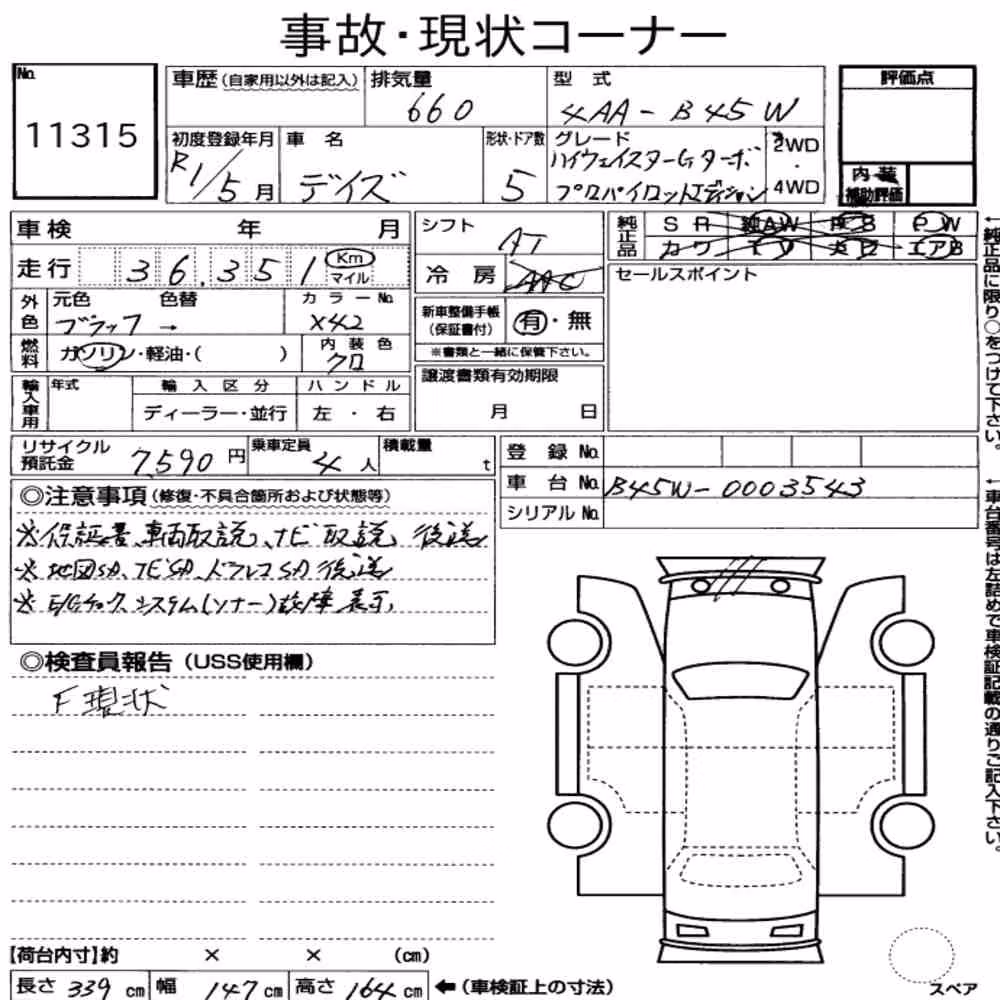 事故・現状コーナー
No.
11315
車歴(自家用以外は記入)
排気量
660
型式
4AA-B45W
評価点
初度登録年月
R1/5月
車名
デイズ
形状・ドア数
5
グレード
ハイウェイスターGターボ
プロパイロットエディション
2WD
・
4WD
内装
補助評価
車検 年 月
シフト
AT
純正品
SR 純AW PS PW
カワ TV ナビ エアB
走行 36,351 Km
マイル
冷房
AAC
セールスポイント
外色
元色 色替
ブラック→
カラーNo.
X42
新車整備手帳
(保証書付)
有・無
※書類と一緒に保管下さい。
燃料
ガソリン・軽油・( )
内装色
クロ
輸入車用
年式
輸入区分
ディーラー・並行
ハンドル
左・右
譲渡書類有効期限
月 日
←純正品に限り○をつけて下さい。
リサイクル
預託金
7,590円
乗車定員
4人
積載量
t
登録No.
車台No. B45W-0003543
シリアルNo.
◎注意事項(修復・不具合箇所および状態等)
※保証書、車両取説、ナビ取説、後送
※地図SD、TVSD、ドラレコSD後送
※E/Gチェック、システム(ソナー)故障表示、
←車台番号は左詰めで車検証記載の通りご記入下さい。
◎検査員報告(USS使用欄)
F現状
【荷台内寸】約 × × (cm)
長さ 339 cm 幅 147 cm 高さ 164 cm ←(車検証上の寸法)
スペア